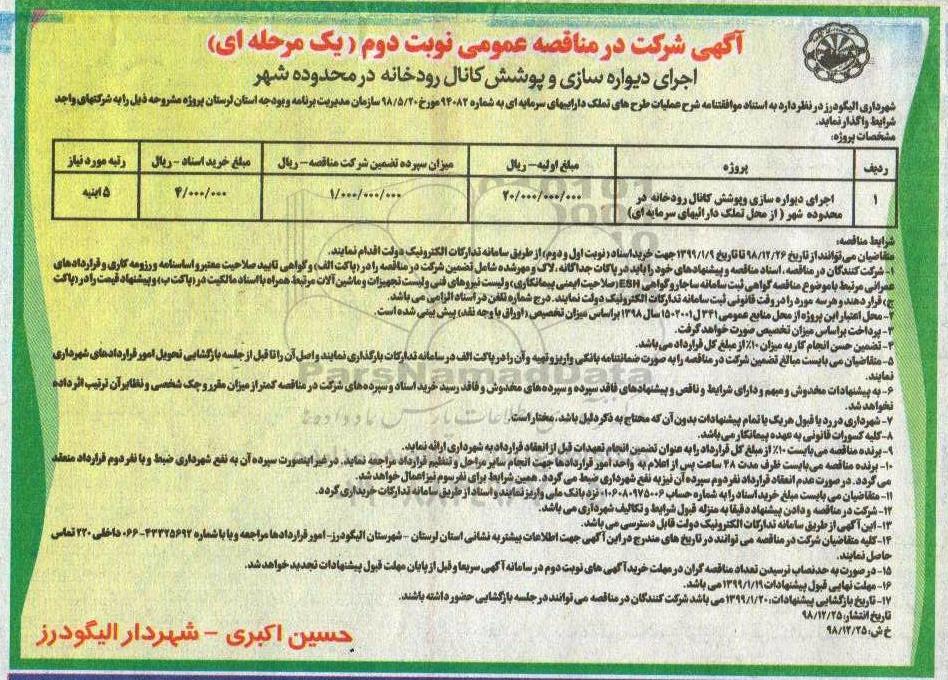 آگهی شرکت در مناقصه عمومی نوبت دوم ( یک مرحله ای)
اجرای دیواره سازی و پوشش کانال رودخانه در محدوده شهر
شهرداری الیگودرز در نظر دارد به استناد موافقتنامه شرح عملیات طرح های تملک داراییهای سرمایه ای به شماره ۹۳۰۸۲ مورخ ۹۸/۵/۲۰ سازمان مدیریت برنامه و بودجه استان لرستان پروژه مشروحه ذیل را به شرکتهای واجد
شرایط واگذار نماید.
مشخصات پروژه:
ردیف پروژه مبلغ اولیه – ریال میزان سپرده تضمین شرکت مناقصه – ریال مبلغ خرید اسناد – ریال رتبه مورد نیاز
۱ اجرای دیواره سازی وپوشش کانال رودخانه در ۲۰/۰۰۰/۰۰۰/۰۰۰ ۱/۰۰۰/۰۰۰/۰۰۰ ۴/۰۰۰/۰۰۰ ۵ ابنیه
محدوده شهر ( از محل تملک دارائیهای سرمایه ای)
شرایط مناقصه:
متقاضیان می توانند از تاریخ ۹۸/۱۲/۲۶ تا تاریخ ۱۳۹۹/۱/۹ جهت خرید اسناد ( نوبت اول و دوم) از طریق سامانه تدارکات الکترونیک دولت اقدام نمایند.
۱- شرکت کنندگان در مناقصه، اسناد مناقصه و پیشنهادهای خود را باید در پاکات جداگانه، لاک و مهر شده شامل تضمین شرکت در مناقصه را در (پاکت الف) و گواهی تایید صلاحیت معتبر و اساسنامه و رزومه کاری و قراردادهای
عمرانی مرتبط با موضوع مناقصه گواهی ثبت سامانه ساجار و گواهی ESH (صلاحیت ایمنی پیمانکاری) و لیست نیروهای فنی و لیست تجهیزات و ماشین آلات مرتبط همراه با اسناد مالکیت در (پاکت ب) و پیشنهاد قیمت را در (پاکت
ج) قرار دهند و هر سه مورد را در وقت قانونی ثبت سامانه تدارکات الکترونیک دولت نمایند. درج شماره تلفن در اسناد الزامی می باشد.
۲- محل اعتبار این پروژه از محل منابع عمومی ۱۵۰۲۰۰۱ل۳۴۱ سال ۱۳۹۸ براساس میزان تخصیص (اوراق یا وجه نقد) پیش بینی شده است.
۳- پرداخت براساس میزان تخصیص صورت خواهد گرفت.
۴- تضمین حسن انجام کار به میزان ۱۰٪ از مبلغ کل قرارداد می باشد.
۵- متقاضیان می بایست مبالغ تضمین شرکت در مناقصه را به صورت ضمانتنامه بانکی واریز و تهیه و آن را در پاکت الف در سامانه تدارکات بارگذاری نمایند و اصل آن را تا قبل از جلسه بازگشایی تحویل امور قراردادهای شهرداری
نمایند.
۶- به پیشنهادات مخدوش و مبهم و دارای شرایط و ناقص و پیشنهادهای فاقد سپرده و سپرده های مخدوش و فاقد رسید خرید اسناد و سپرده های شرکت در مناقصه کمتر از میزان مقرر و چک شخصی و نظایر آن ترتیب اثر داده
نخواهد شد.
۷- شهرداری در رد یا قبول هر یک یا تمام پیشنهادات بدون آن که محتاج به ذکر دلیل باشد، مختار است.
۸- کلیه کسورات قانونی به عهده پیمانکار می باشد.
۹- برنده مناقصه می بایست ۱۰٪ از مبلغ کل قرارداد را به عنوان تضمین انجام تعهدات قبل از انعقاد قرارداد به شهرداری ارائه نماید.
۱۰- برنده مناقصه می بایست ظرف مدت ۴۸ ساعت پس از اعلام به واحد امور قراردادها جهت انجام سایر مراحل و تنظیم قرارداد مراجعه نماید. در غیر اینصورت سپرده آن به نفع شهرداری ضبط و با نفر دوم قرارداد منعقد
می گردد. در صورت عدم انعقاد قرارداد نفر دوم سپرده آن نیز به نفع شهرداری ضبط می گردد. همین شرایط برای نفر سوم نیز اعمال خواهد شد.
۱۱- متقاضیان می بایست مبلغ خرید اسناد را به شماره حساب ۰۱۰۶۰۸۰۹۷۵۰۰۶ نزد بانک ملی واریز نمایند و اسناد از طریق سامانه تدارکات خریداری گردد.
۱۲- شرکت در مناقصه و دادن پیشنهاد دقیقا به منزله قبول شرایط و تکالیف شهرداری می باشد.
۱۳- این آگهی از طریق سامانه تدارکات الکترونیک دولت قابل دسترسی می باشد.
۱۴- کلیه متقاضیان شرکت در مناقصه می توانند در تاریخ های مندرج در این آگهی جهت اطلاعات بیشتر به نشانی استان لرستان – شهرستان الیگودرز- امور قراردادها مراجعه و یا با شماره ۴۳۳۲۵۶۹۲-۰۶۶ داخلی ۲۲۰ تماس
حاصل نمایند.
۱۵- در صورت به حدنصاب نرسیدن تعداد مناقصه گران در مهلت خرید آگهی های نوبت دوم در سامانه آگهی سریعا و قبل از پایان مهلت قبول پیشنهادات تجدید خواهد شد.
۱۶- مهلت نهایی قبول پیشنهادات ۱۳۹۹/۱/۱۹ می باشد.
۱۷- تاریخ بازگشایی پیشنهادات: ۱۳۹۹/۱/۲۰ می باشد شرکت کنندگان در مناقصه می توانند در جلسه بازگشایی حضور داشته باشند.
تاریخ انتشار: ۹۸/۱۲/۲۵
خ ش: ۹۸/۱۲/۲۵
حسین اکبری – شهردار الیگودرز
ParsNamadData